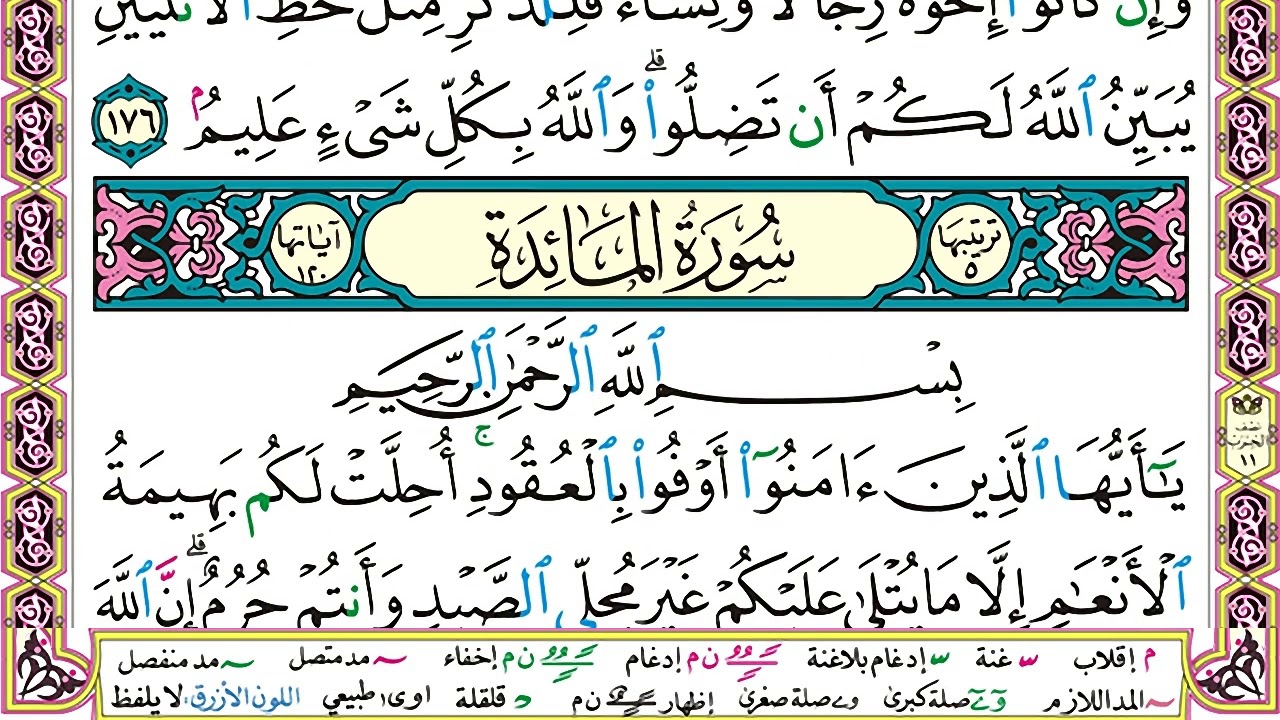 وَإِن كَانُوٓا۟ إِخْوَةً رِّجَالًا وَنِسَآءً فَلِلذَّكَرِ مِثْلُ حَظِّ ٱلْأُنثَيَيْنِ
يُبَيِّنُ ٱللَّهُ لَكُمْ أَن تَضِلُّوا۟ ۗ وَٱللَّهُ بِكُلِّ شَىْءٍ عَلِيمٌۢ ١٧٦
ترتيبها ٥ سُورَةُ المَائِدَة آياتها ١٢٠
بِسْمِ ٱللَّهِ ٱلرَّحْمَٰنِ ٱلرَّحِيمِ
يَٰٓأَيُّهَا ٱلَّذِينَ ءَامَنُوٓا۟ أَوْفُوا۟ بِٱلْعُقُودِ ۚ أُحِلَّتْ لَكُم بَهِيمَةُ
ٱلْأَنْعَٰمِ إِلَّا مَا يُتْلَىٰ عَلَيْكُمْ غَيْرَ مُحِلِّى ٱلصَّيْدِ وَأَنتُمْ حُرُمٌ ۗ إِنَّ ٱللَّهَ
نصف الحزب ١١
م إقلاب س غنة س إدغام بلاغنة ن م إدغام ن م إخفاء مد متصل مد منفصل
المد اللازم و ے صلة كبرى و ے صلة صغرى إظهار ن م د قلقلة اوى طبيعي اللون الأزرق: لا يلفظ